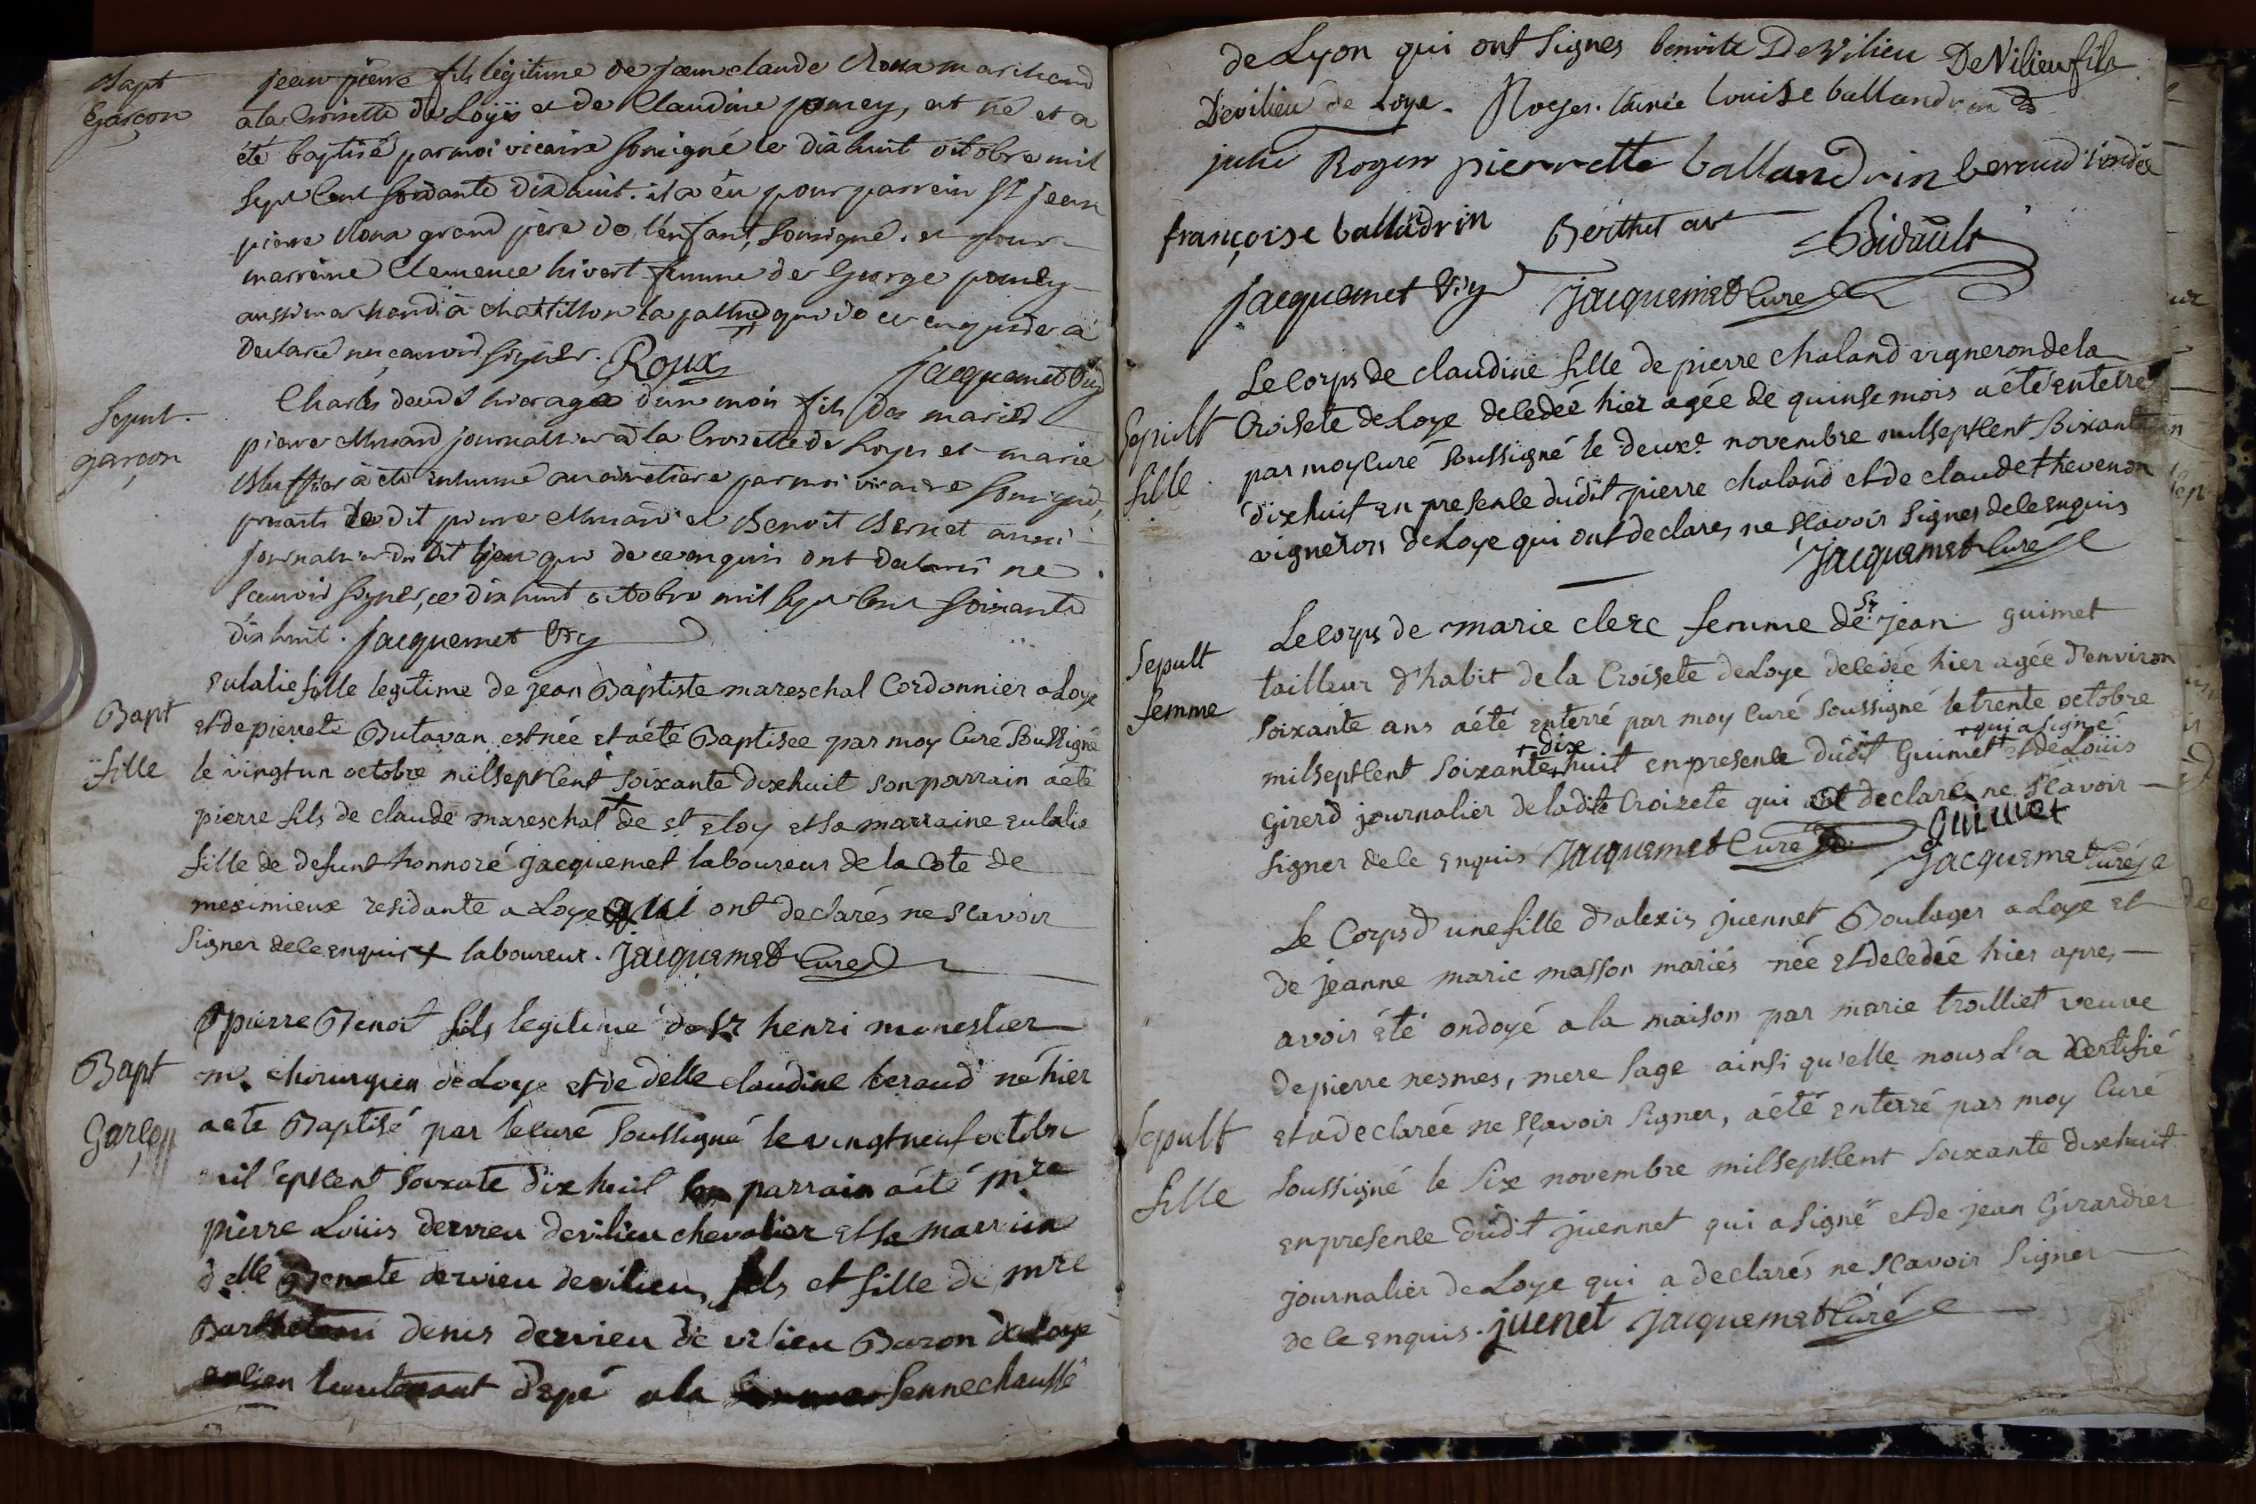 Bapt
Garçon
jean pierre fils légitime de jean claude Roux marchand
a la Croisette de Loyes et de Claudine pomey, est né et a
été baptisé par moi vicaire sousigné le dix huit octobre mil
sept Cent soixante dix huit. il a eu pour parrein Sr jean
pierre Roux grand père de l'enfant, sousigné. et pour
marreine Clemence hivert femme de George pomey
aussi marchand à chatillon la pallud qui de ce enquise a
declaré ne scavoir signer. Roux
jacquemet Viq
Sepult.
garçon
Charles decedé hier agé d'un mois fils des mariés
pierre journallier à la Croizette de Loyes et marie
a été inhumé au cimetiere par moi vicaire sousigné,
presents le dit pierre et Benoit Bernet aussi
journallier du dit lieu qui de ce enquis ont declaré ne
scavoir signer, ce dix huit octobre mil sept Cent soixante
dix huit. jacquemet Viq
Bapt
fille
Eulalie fille legitime de jean Baptiste mareschal Cordonnier a Loye
et de pierrete Butavan est née et a été Baptisee par moy Curé Soussigné
le vingt un octobre mil sept Cent soixante dix huit son parrain a été
pierre fils de claude mareschal de St Eloy et sa marraine eulalie
fille de defunt honnoré jacquemet laboureur de la Cote de
meximieux residante a Loye qui ont declarés ne scavoir
signer de ce enquis + laboureur. jacquemet Curé
Bapt
Garçon
pierre Benoit fils legitime de Sr henri monestier
me. chirurgien de Loye et de delle claudine beraud né hier
a été Baptisé par le curé Soussigné le vingt neuf octobre
mil sept Cent soixante dix huit son parrain a été mre
pierre Loüis dervieu devilieu chevalier et sa marraine
delle Benoite dervieu devilieu, fils et fille de mre
Barthelemi denis dervieu de vilieu Baron de Loye
ancien lieutenant d'épé a la Sennechaussé
de Lyon qui ont signés benoite De Vilieu DeVilieu fils
Devilieu de Loye. Roger. lainée louise ballandrin
julie Roger pierrette ballandrin beraud
françoise ballandrin Berthet Bidault
jacquemet Viq jacquemet Curé
Sepult
fille.
Le Corps de claudine fille de pierre chaland vigneron de la
Croisete de Loye decedée hier agée de quinse mois a été enterré
par moy Curé soussigné le deuxe. novembre mil sept Cent soixante
dix huit en presence dudit pierre chaland et de claude thevenon
vignerons de Loye qui ont declares ne scavoir signer de ce enquis
jacquemet Curé
Sepult
femme
Le Corps de marie clerc femme de Sr jean guimet
tailleur d'habit de la Croisete de Loye decedée hier agée d'environ
soixante ans a été enterré par moy Curé soussigné le trente octobre
+ dix + qui a signé
mil sept Cent soixante + huit en presence dudit Guimet + et de Loüis
Girerd journalier de la dite Croizete qui a declaré ne scavoir
signer de ce enquis jacquemet Curé guimet
jacquemet Curé
Sepult
fille
Le Corps d'une fille d'alexis juennet Boulager a Loye et
de jeanne marie masson mariés née et decedée hier apres
avoir été ondoyé a la maison par marie trolliet veuve
de pierre nesmes, mere sage ainsi qu'elle nous l'a certifié
et a declarée ne sçavoir signer, a été enterré par moy Curé
soussigné le six novembre mil sept Cent soixante dix huit
en presence dudit juennet qui a signé et de jean Girardier
journalier de Loye qui a declarés ne scavoir signer
de ce enquis. juenet jacquemet Curé